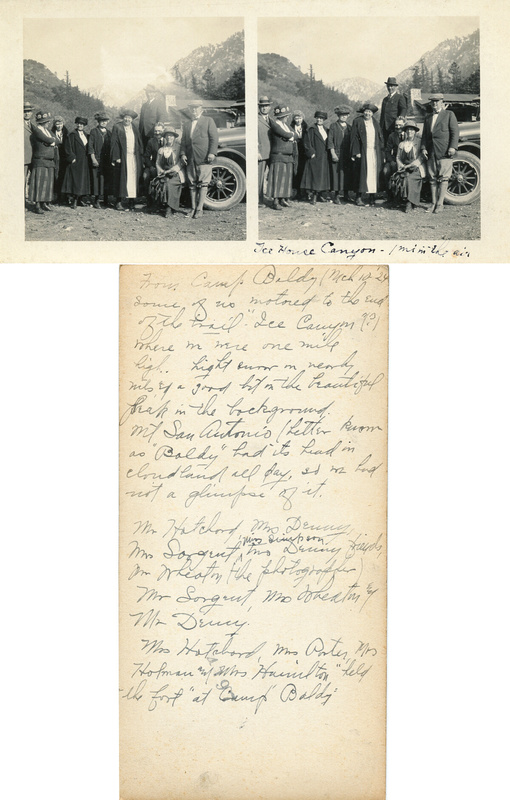 Ice House Canyon - 1 mi in the air
From Camp Baldy (Mch 19 24
some of us motored to the end
of the trail - "Ice Canyon" (?)
where we were one mile
high. Light snow on nearly
a good bit in the beautiful
peak in the background.
Mt San Antonio (better known
as "Baldy" had its head in
cloudland all day, so we had
not a glimpse of it.
Mr Hatchard, Mrs Denny,
Mrs Simpson
Mrs Sargent, Mrs Denny's friends,
Mr Wheaton (the photographer)
Mr Sargent, Mrs Wheaton &
Mr Denny.
Mrs Hatchard, Mrs Porter, Mrs
Holman & Mrs Hamilton "held
the fort" at "Camp Baldy